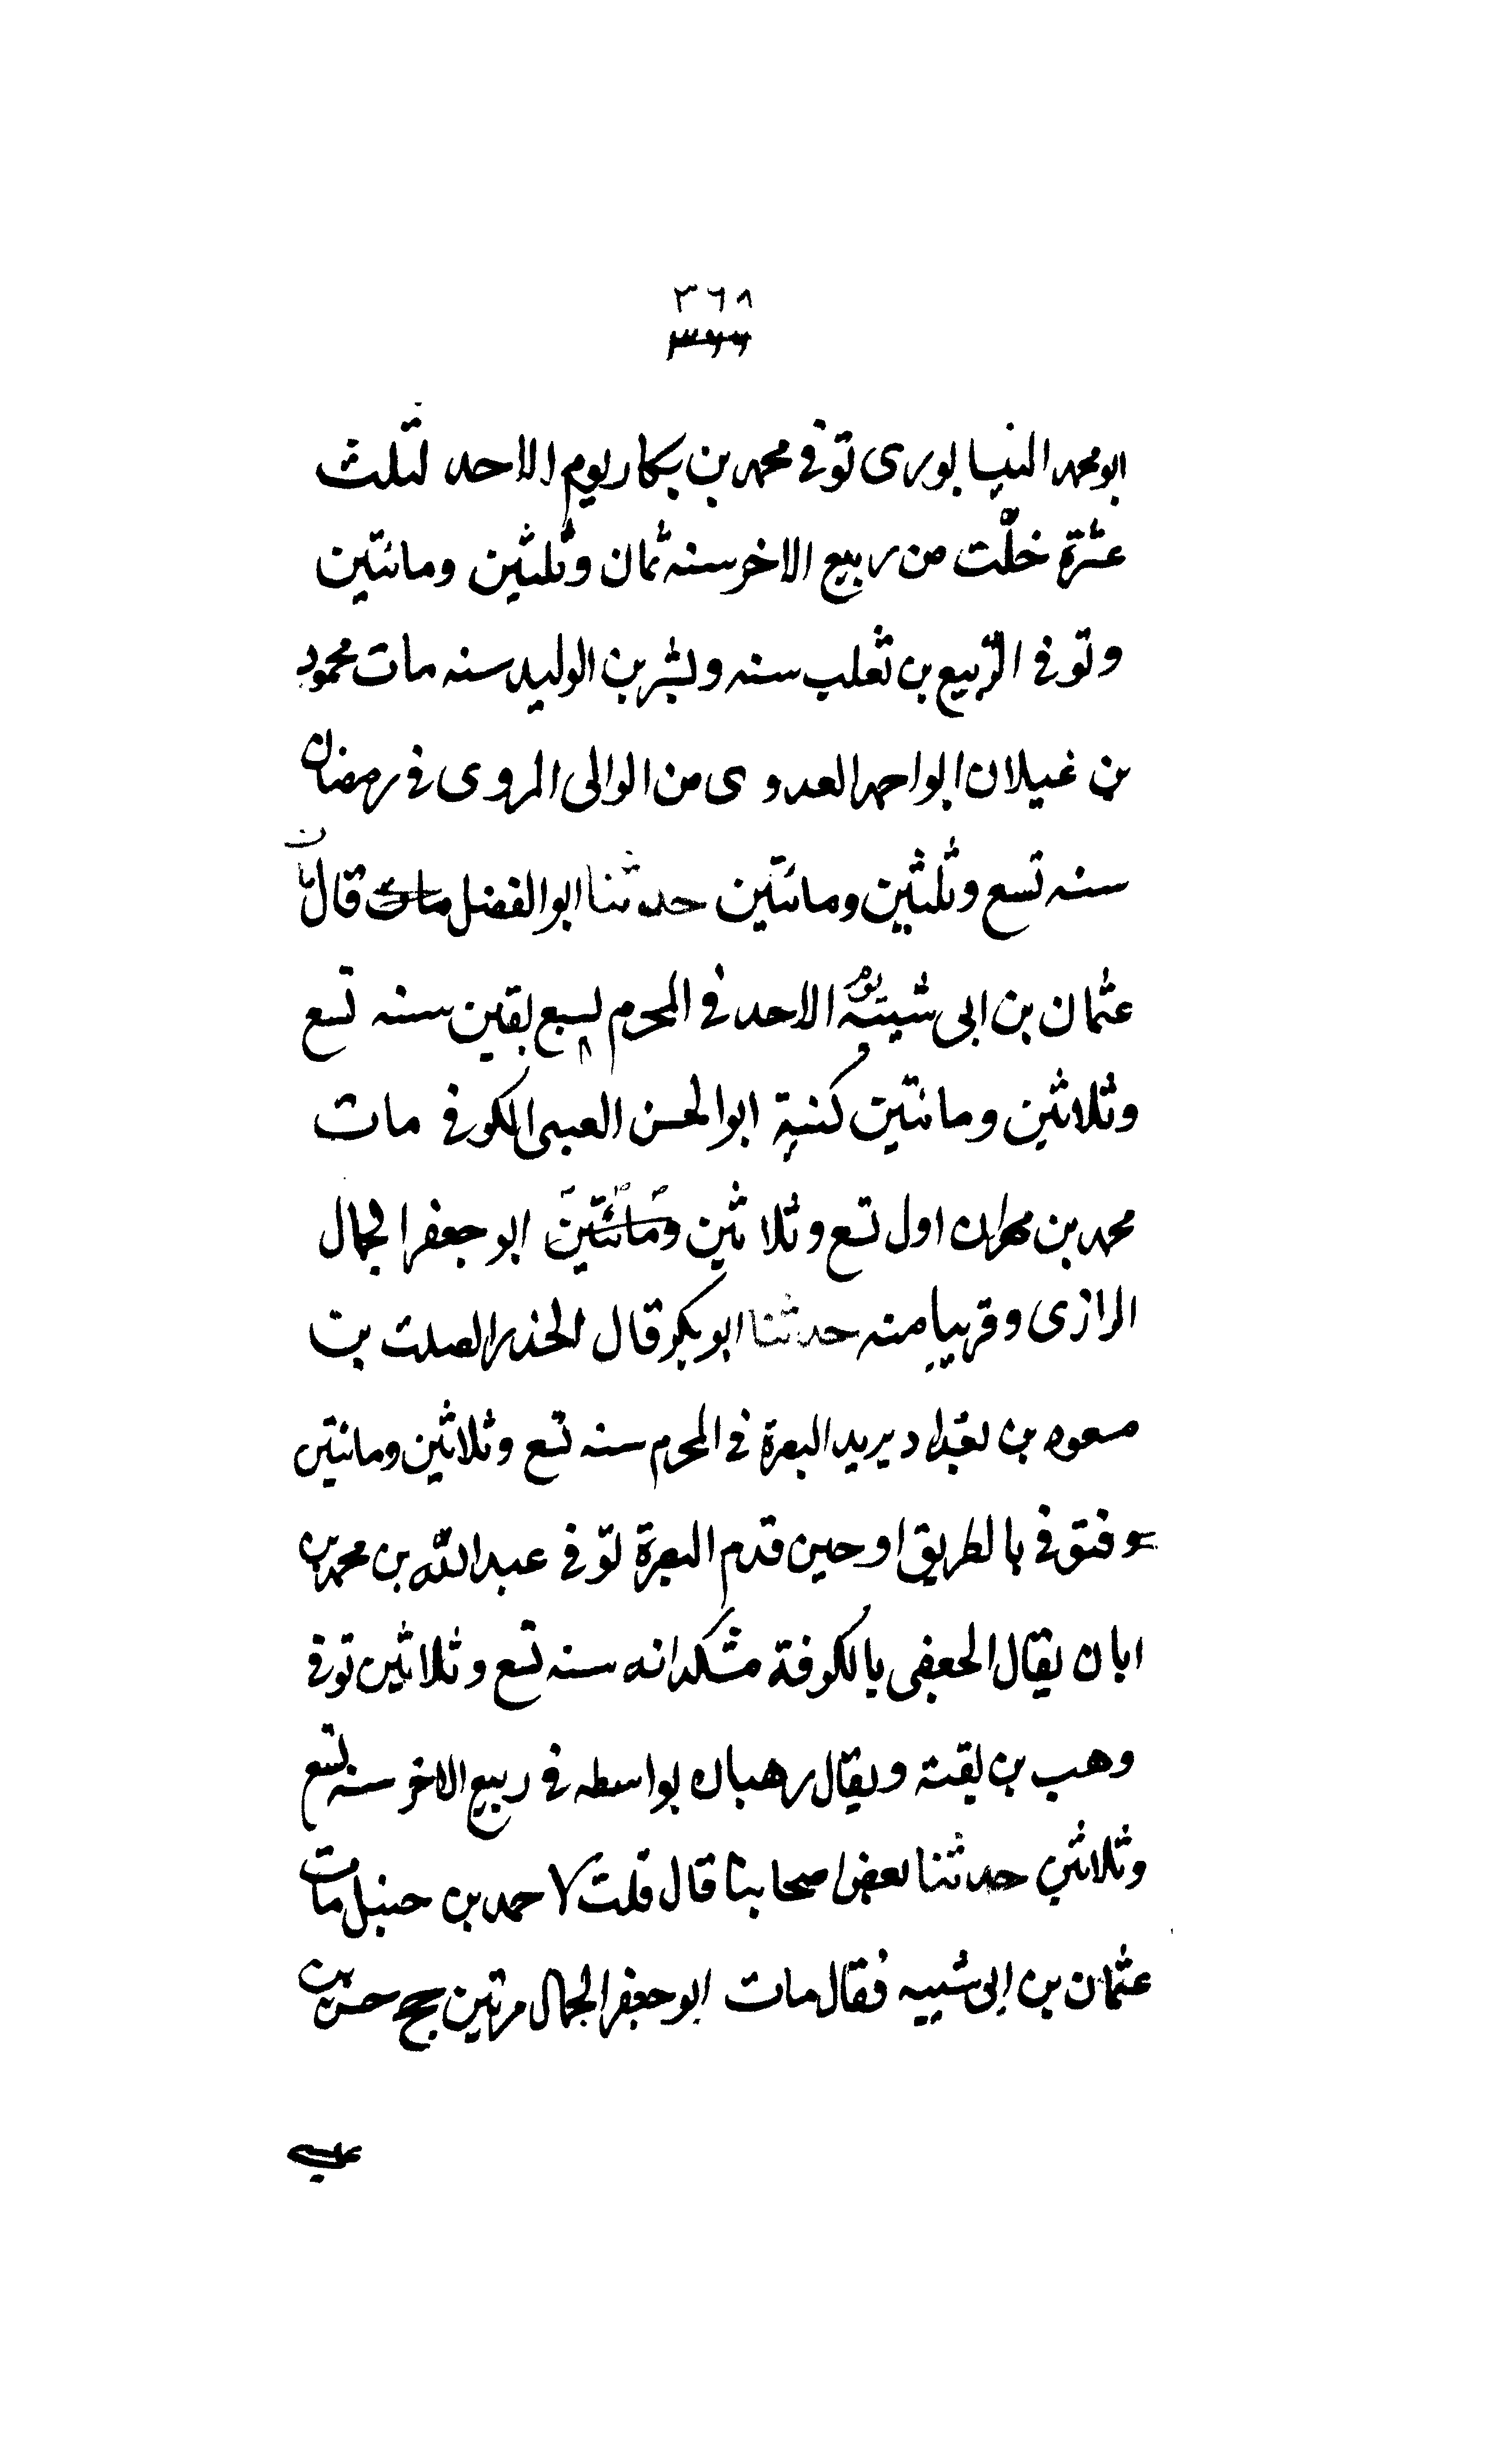 ٣٦٨
٣٦٦
ابو محمد النيسابورى توفى محمد بن بكار يوم الاحد لثلث
عشرة خلت من ربيع الاخر سنه ثمان وثلثين ومائتين
وتوفى الربيع بن ثعلب سنه وبشر بن الوليد سنه مات محمود
بن غيلان ابو احمد العدوى من الوالى المروى فى رمضان
سنه تسع وثلثين ومائتين حدثنا ابو الفضل مات قال مات
عثمان بن ابى شيبه يوم الاحد فى المحرم لسبع بقين سنه تسع
وثلاثين ومائتين كنية ابو الحسن العبسى الكوفى مات
محمد بن مهران اول تسع وثلاثين ومائتين ابو جعفر الجمال
الرازى وقريبا منه حدثنا ابو بكر قال الصلت بن
مسعود بن بغداد يريد البصرة فى المحرم سنه تسع وثلاثين ومائتين
فتوفى بالطريق او حين قدم البصرة توفى عبد الله بن محمد بن
ابان يقال الجعفى بالكوفة مشكدانه سنه تسع وثلاثين توفى
وهب بن بقية ويقال رهبان بواسطه فى ربيع الاخر سنه تسع
وثلاثين حدثنا بعض اصحابنا قال قلت لاحمد بن حنبل مات
عثمان بن ابى شيبه فقال مات ابو جعفر الجمال مرتين حج حسن بن